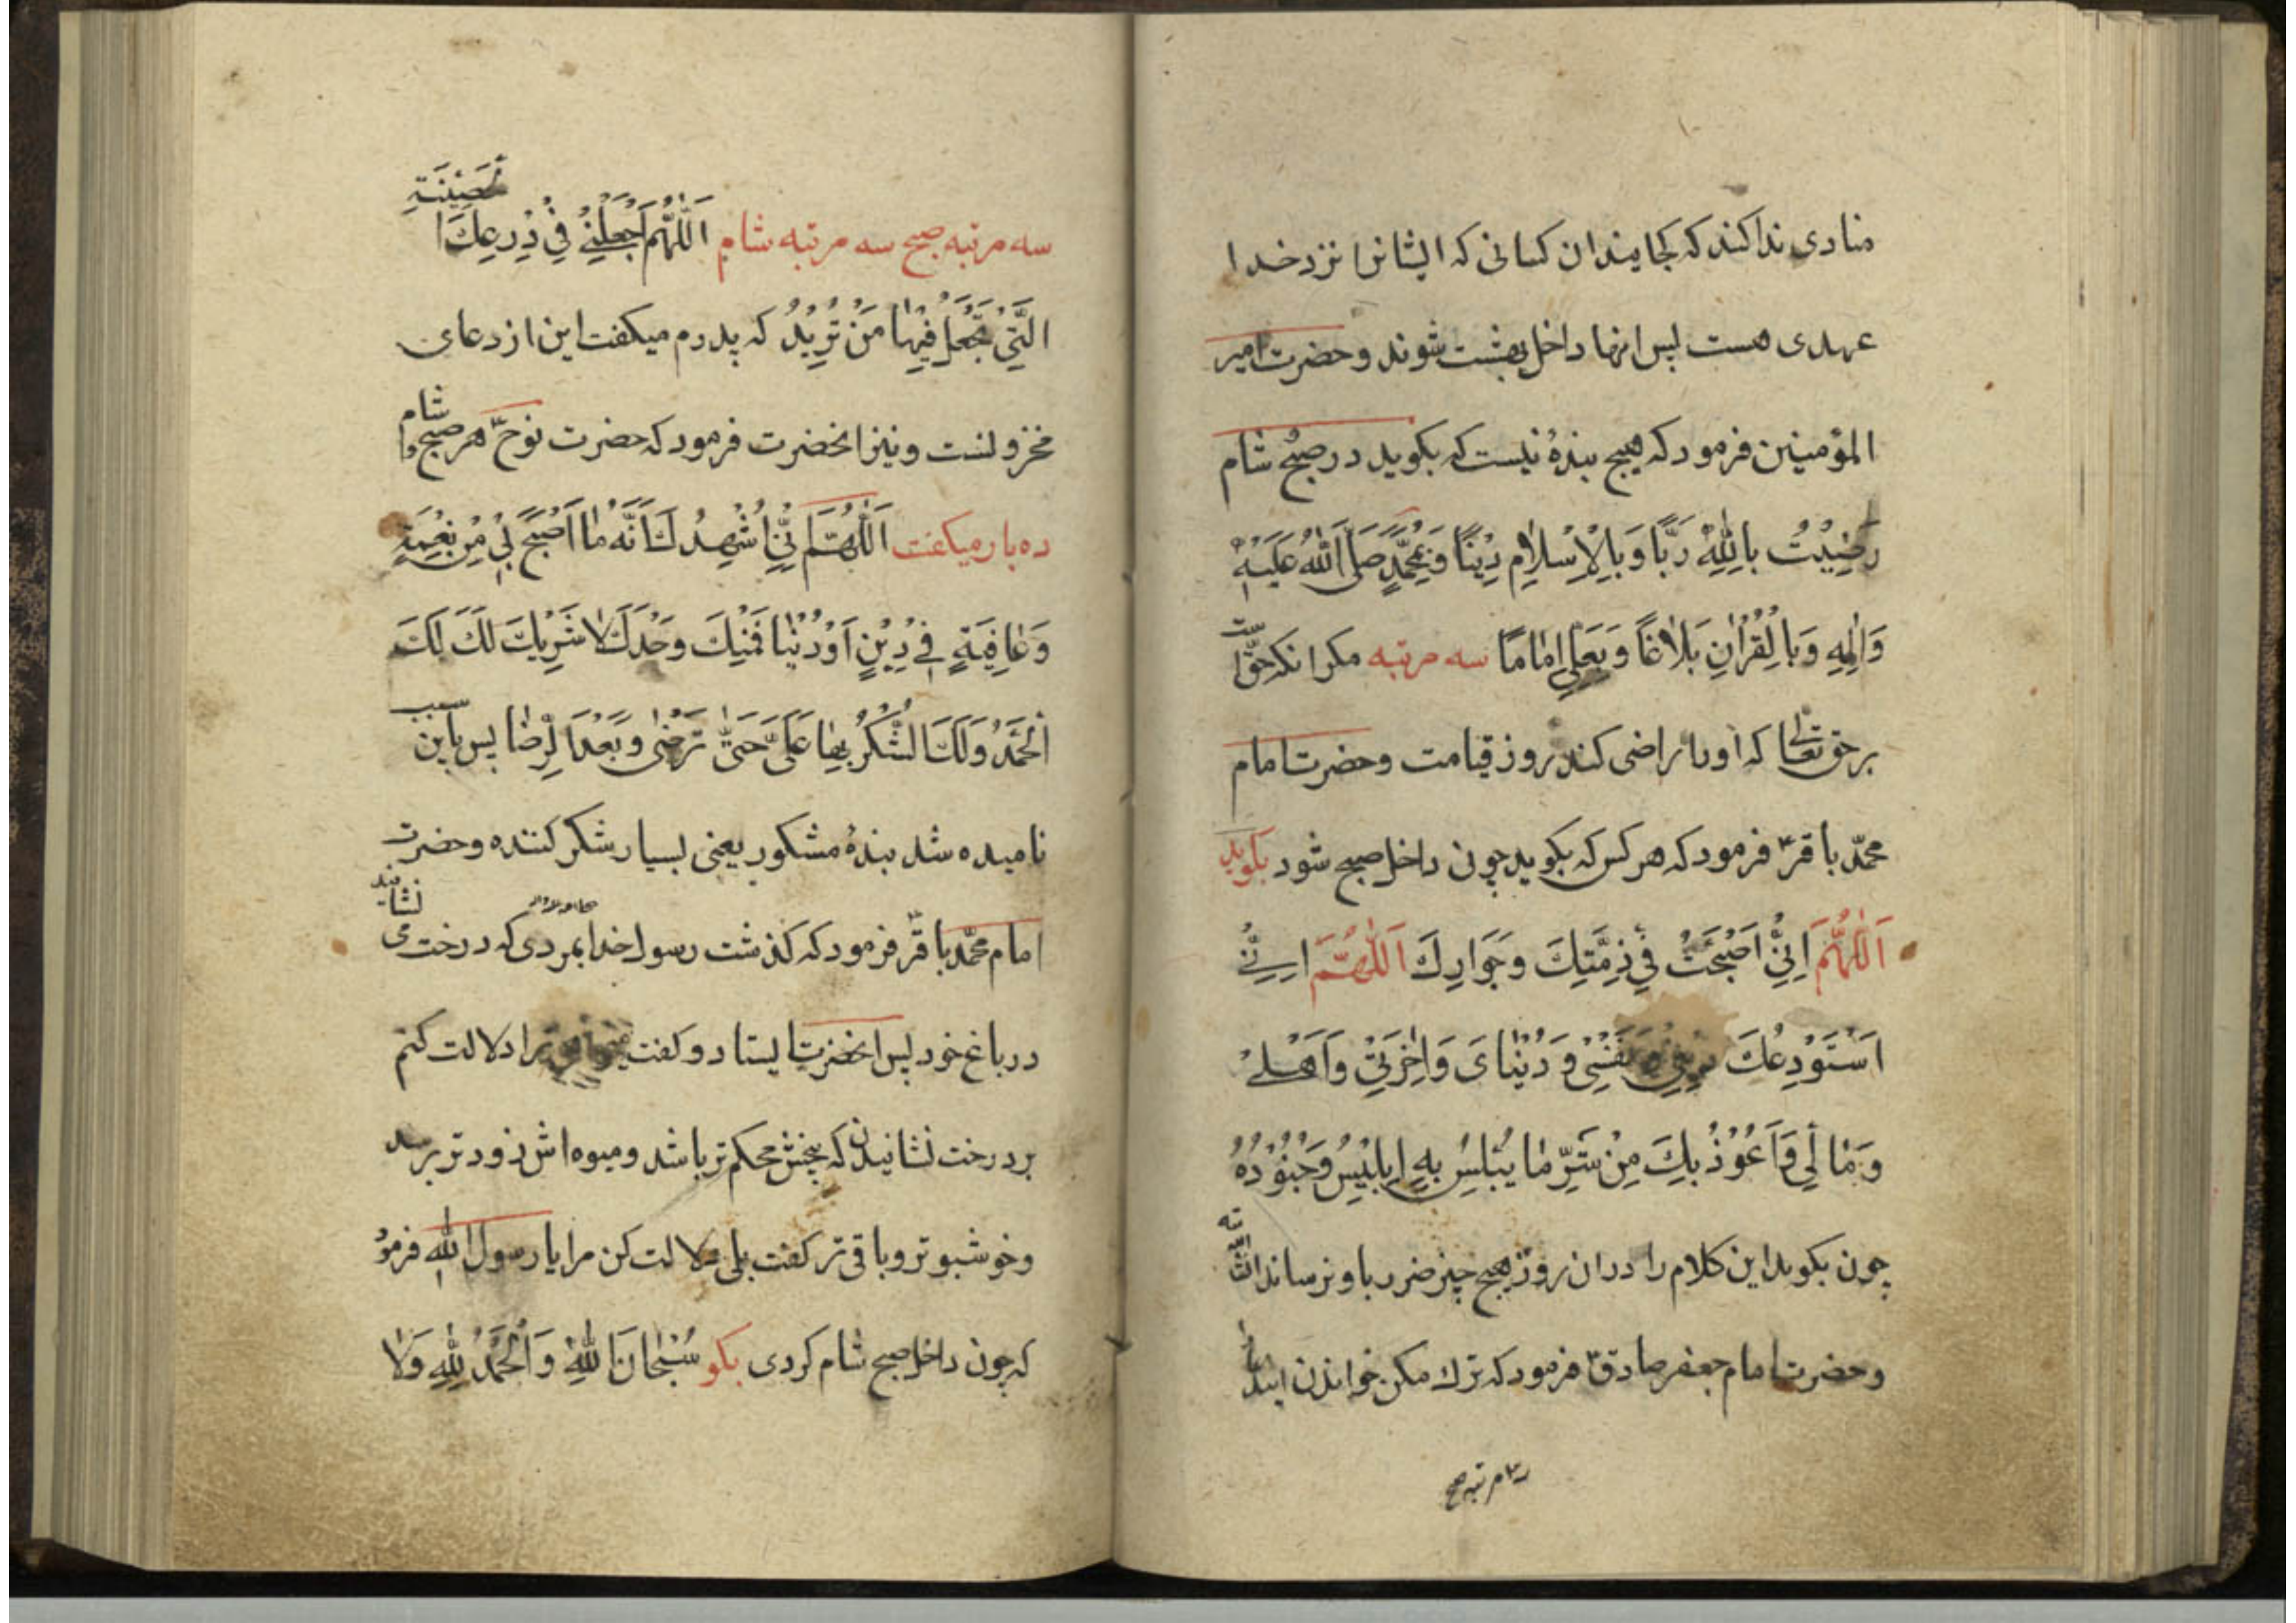 منادی ندا کند که کجایند ان کسانی که ایشانرا نزد خدا
عهدی هست پس انها داخل بهشت شوند و حضرت امیر
المؤمنین فرمود که هیچ بندهٔ نیست که بکوید در صبح شام
رَضِیْتُ بِاللّٰهِ رَبًّا وَبِالْاِسْلٰامِ دِیْنًا وَبِمُحَمَّدٍ صَلَّی اللّٰهُ عَلَیْهِ
وَاٰلِهِ وَبِالْقُرْاٰنِ بَلٰاغًا وَبِعَلِیٍّ اِمٰامًا سه مرتبه مکر انکه حقّست
بر حق تعالٰی که او را راضی کند روز قیامت و حضرت امام
محمّد باقرؑ فرمود که هر کس که بکوید چون داخل صبح شود بکوید
اَللّٰهُمَّ اِنِّیْ اَصْبَحْتُ فِیْ ذِمَّتِكَ وَجَوَارِكَ اَللّٰهُمَّ اِنِّیْ
اَسْتَوْدِعُكَ دِیْنِیْ وَنَفْسِیْ وَدُنْیٰایَ وَاٰخِرَتِیْ وَاَهْلِیْ
وَمٰالِیْ وَاَعُوْذُ بِكَ مِنْ شَرِّ مٰا یُبْلِسُ بِهِ اِبْلِیْسُ وَجُنُوْدُهُ
چون بکوید این کلام را در ان روز هیچ چیز ضرر باو نرساند انشاالله
و حضرت امام جعفر صادقؑ فرمود که ترك مکن خواندن ایندعا را
سه مرتبه صبح
سه مرتبه صبح سه مرتبه شام اَللّٰهُمَّ اجْعَلْنِیْ فِیْ دِرْعِكَ الْحَصِیْنَةِ
الَّتِیْ تَجْعَلُ فِیْهٰا مَنْ تُرِیْدُ که پدرم میکفت این از دعای
مخزونست و نیز انحضرت فرمود که حضرت نوحؑ هر صبح و شام
ده بار میکفت اَللّٰهُمَّ اِنِّیْ اُشْهِدُكَ اَنَّهُ مٰا اَصْبَحَ بِیْ مِنْ نِعْمَةٍ
وَعٰافِیَةٍ فِیْ دِیْنٍ اَوْ دُنْیٰا فَمِنْكَ وَحْدَكَ لٰا شَرِیْكَ لَكَ لَكَ
الْحَمْدُ وَلَكَ الشُّكْرُ بِهٰا عَلَیَّ حَتّٰی تَرْضٰی وَبَعْدَ الرِّضٰا پس باین سبب
نامیده شد بندهٔ مشکور یعنی بسیار شکر کننده و حضرت
امام محمّد باقرؑ فرمود که کذشت رسول خدا بمردی که درخت می نشانید
در باغ خود پس انحضرت ایستاد و کفت ترا دلالت کنم
بر درخت نشانیدن که بیخش محکم تر باشد و میوه اش زودتر برسد
و خوشبوتر و باقی تر کفت بلی دلالت کن مرا یا رسول الله فرمود
که چون داخل صبح شام کردی بکو سُبْحٰانَ اللّٰهِ وَالْحَمْدُ لِلّٰهِ وَلٰا